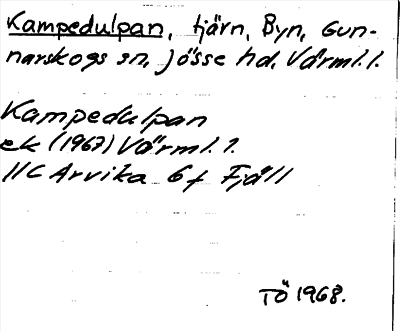 Kampedulpan, tjärn, Byn, Gun-
narskogs sn, Jösse hd, Värml. l.
Kampedulpan
ek (1967) Värml. 1.
11C Arvika 6f Fjäll
TÖ 1968.